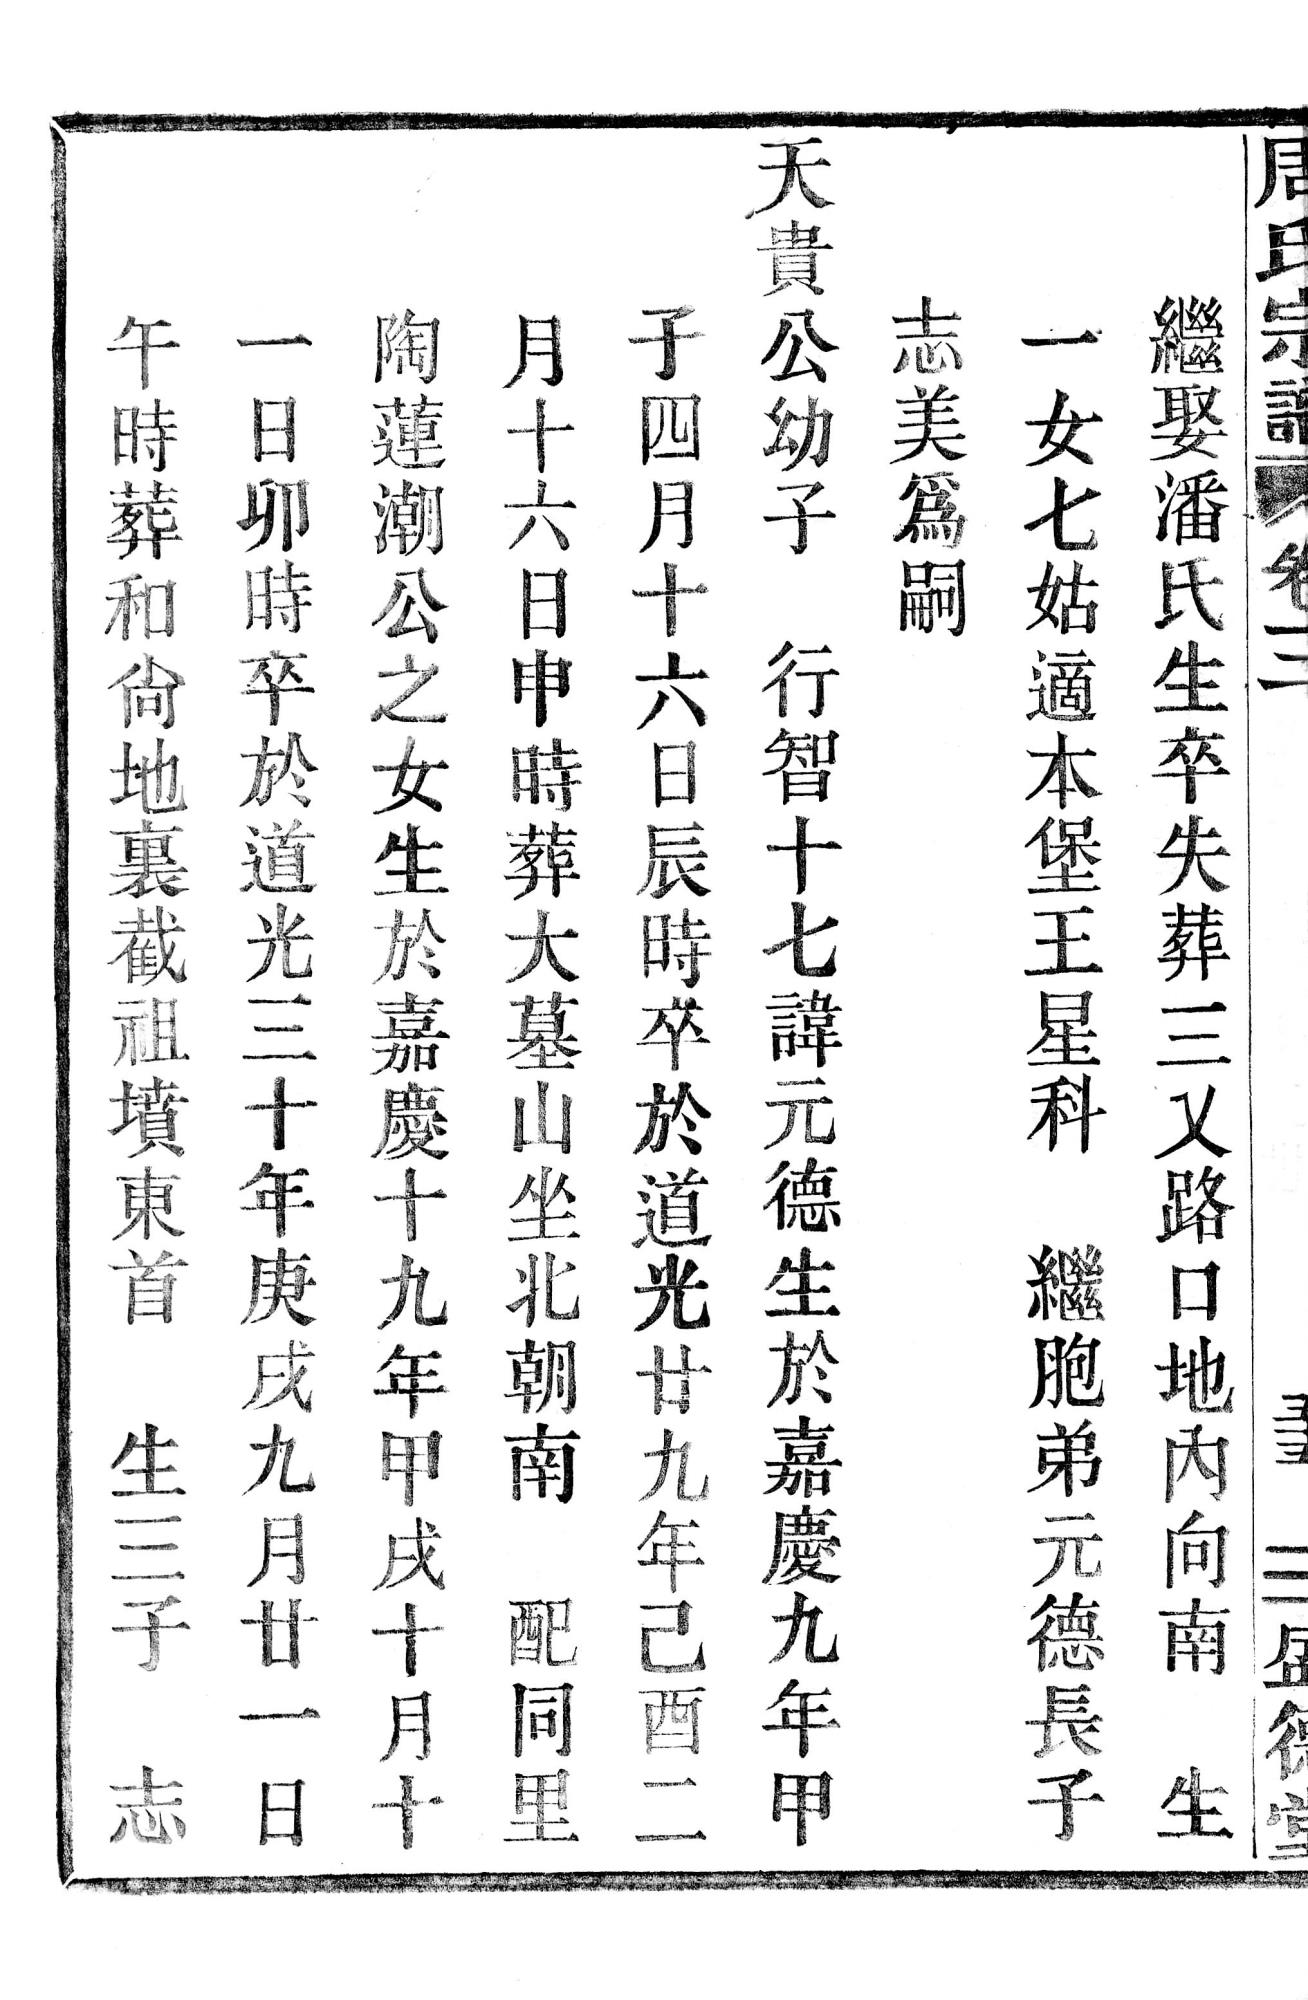 唐氏宗譜 卷二 三盛德堂
繼娶潘氏生卒失葬三叉路口地內向南 生
一女七姑適本堡王星科 繼胞弟元德長子
志美爲嗣
天貴公幼子 行智十七諱元德生於嘉慶九年甲
子四月十六日辰時卒於道光廿九年己酉二
月十六日申時葬大墓山坐北朝南 配同里
陶蓮潮公之女生於嘉慶十九年甲戌十月十
一日卯時卒於道光三十年庚戌九月廿一日
午時葬和尙地裏截祖墳東首 生三子 志